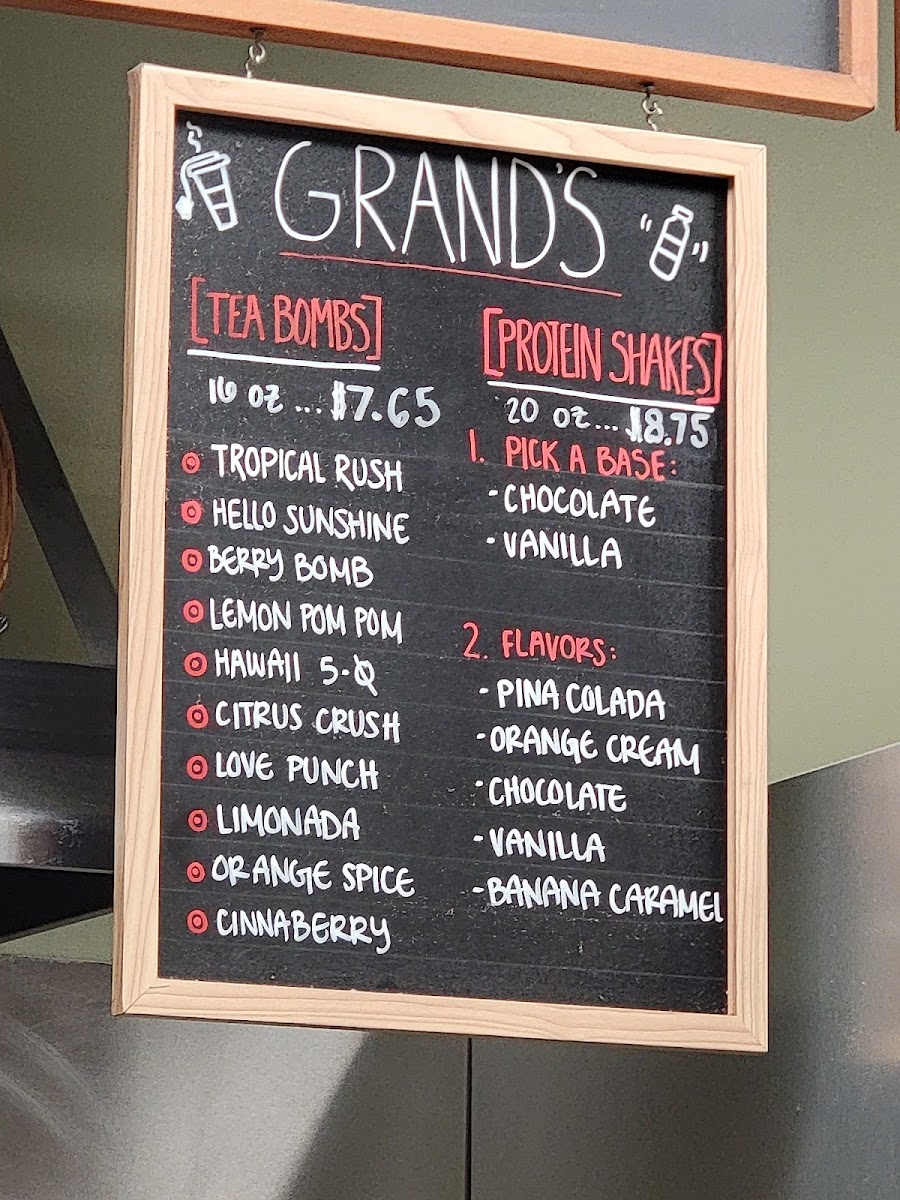 GRAND'S
[TEA BOMBS]
16 oz ... $7.65
TROPICAL RUSH
HELLO SUNSHINE
BERRY BOMB
LEMON POM POM
HAWAII 5-0
CITRUS CRUSH
LOVE PUNCH
LIMONADA
ORANGE SPICE
CINNABERRY
[PROTEIN SHAKES]
20 oz... $8.75
1. PICK A BASE:
- CHOCOLATE
- VANILLA
2. FLAVORS:
- PINA COLADA
- ORANGE CREAM
- CHOCOLATE
- VANILLA
- BANANA CARAMEL